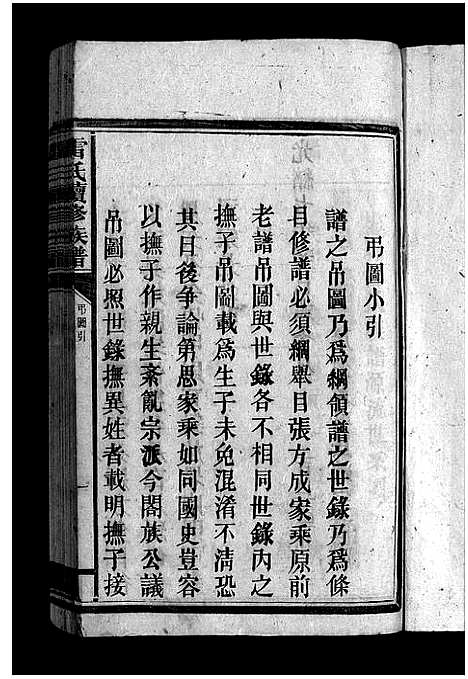 弔圖小引
譜之吊圖乃爲綱領譜之世錄乃爲條
目修譜必須綱舉目張方成家乘原前
老譜吊圖與世錄各不相同世錄內之
撫子吊圖載爲生子未免混淆不清恐
其日後爭論第思家乘如同國史豈容
以撫子作親生紊亂宗派今閤族公議
吊圖必照世錄撫異姓者載明撫子接
雷氏續修族譜
弔圖引
一